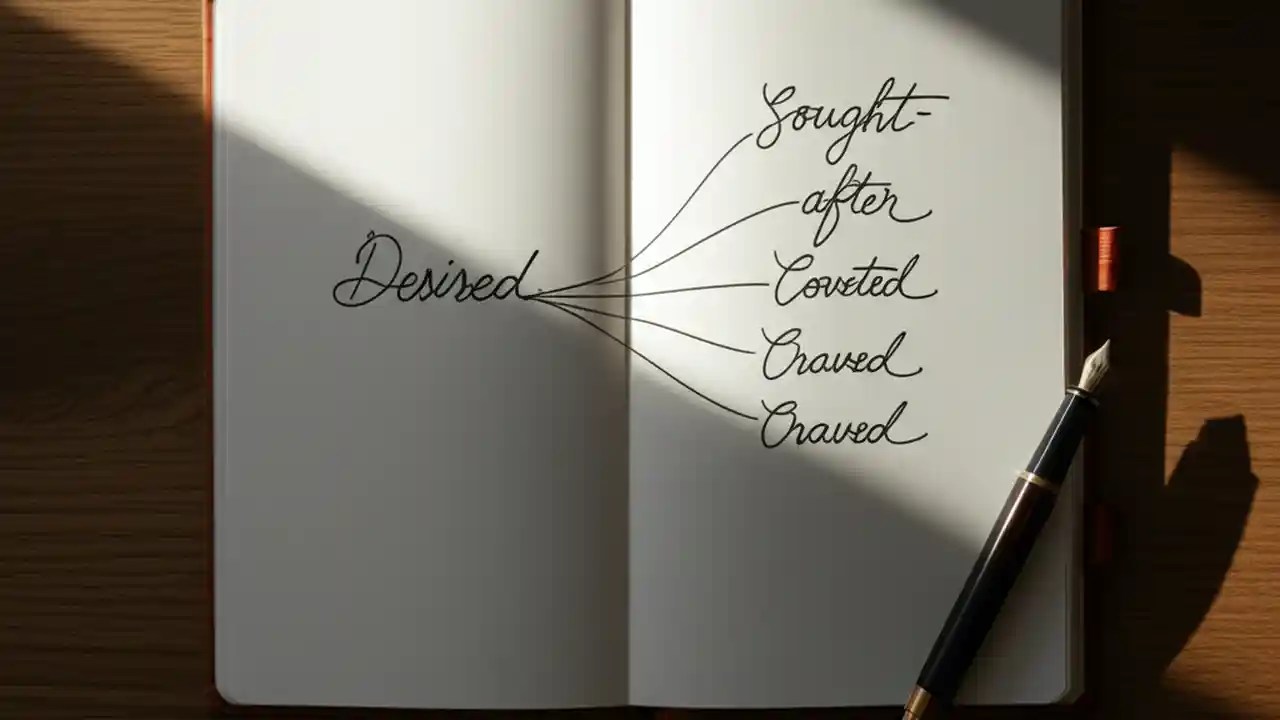 Desired
Sought-
after
Coveted
Craved
Craved